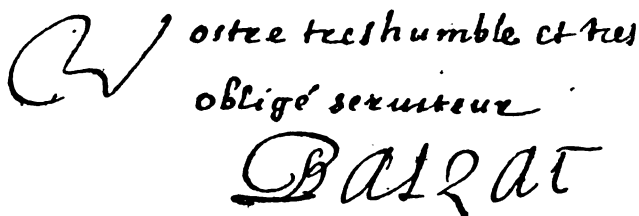 Vostre treshumble et tres
obligé seruiteur
BALZAC